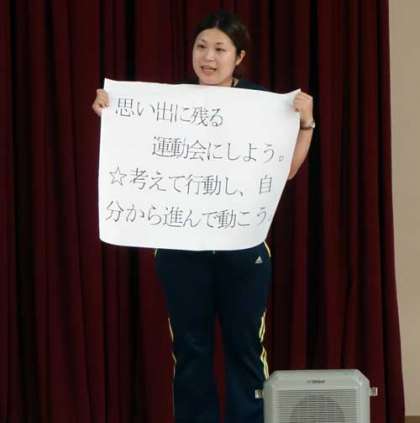 思い出に残る
運動会にしよう。
☆考えて行動し、自
分から進んで動こう。